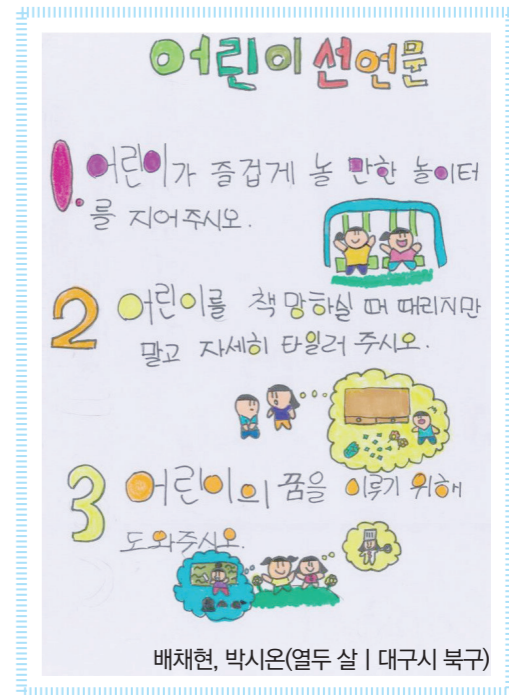 어린이 선언문
1. 어린이가 즐겁게 놀 만한 놀이터
를 지어주시오.
2 어린이를 책망하실 때 때리지만
말고 자세히 타일러 주시오.
3 어린이의 꿈을 이루기 위해
도와주시오.
배채현, 박시온(열두 살 | 대구시 북구)